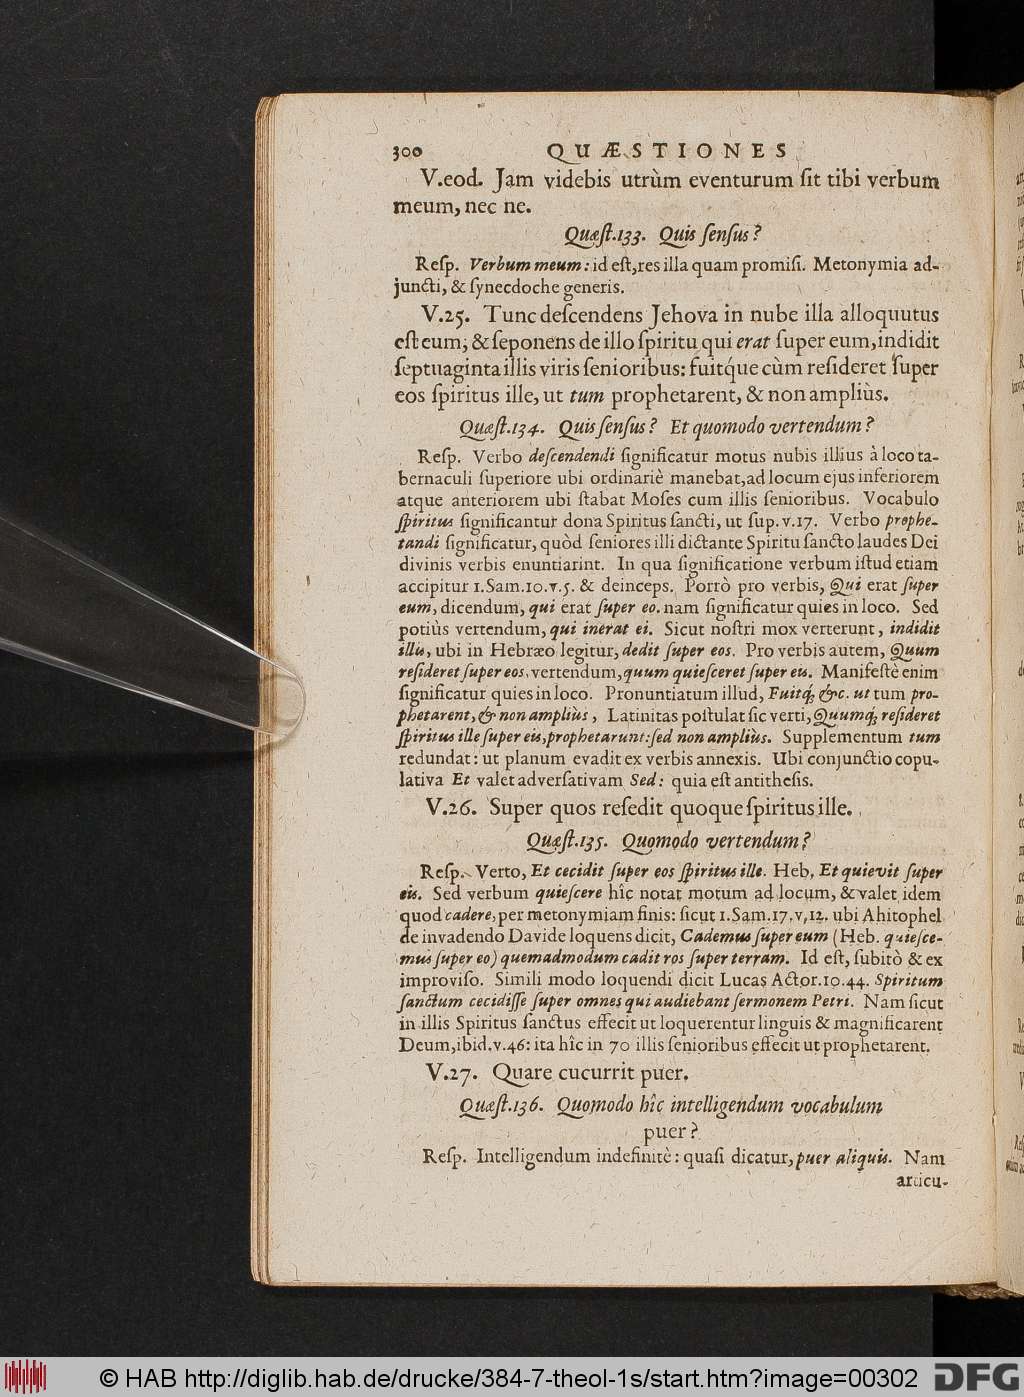 300 QUÆSTIONES
V.eod. Jam videbis utrùm eventurum ſit tibi verbum
meum, nec ne.
Quæſt.133. Quis ſenſus?
Reſp. Verbum meum: id eſt, res illa quam promiſi. Metonymia ad-
juncti, & ſynecdoche generis.
V.25. Tunc deſcendens Jehova in nube illa alloquutus
eſt eum; & ſeponens de illo ſpiritu qui erat ſuper eum, indidit
ſeptuaginta illis viris ſenioribus: fuitq́ue cùm reſideret ſuper
eos ſpiritus ille, ut tum prophetarent, & non ampliùs.
Quæſt.134. Quis ſenſus? Et quomodo vertendum?
Reſp. Verbo deſcendendi ſignificatur motus nubis illius à loco ta-
bernaculi ſuperiore ubi ordinariè manebat, ad locum ejus inferiorem
atque anteriorem ubi ſtabat Moſes cum illis ſenioribus. Vocabulo
ſpiritus ſignificantur dona Spiritus ſancti, ut ſup.v.17. Verbo prophe-
tandi ſignificatur, quòd ſeniores illi dictante Spiritu ſancto laudes Dei
divinis verbis enuntiarint. In qua ſignificatione verbum iſtud etiam
accipitur 1.Sam.10.v.5. & deinceps. Porrò pro verbis, Qui erat ſuper
eum, dicendum, qui erat ſuper eo. nam ſignificatur quies in loco. Sed
potiùs vertendum, qui inerat ei. Sicut noſtri mox verterunt, indidit
illis, ubi in Hebræo legitur, dedit ſuper eos. Pro verbis autem, Quum
reſideret ſuper eos, vertendum, quum quieſceret ſuper eis. Manifeſtè enim
ſignificatur quies in loco. Pronuntiatum illud, Fuitq́; &c. ut tum pro-
phetarent, & non ampliùs, Latinitas poſtulat ſic verti, Quumq́; reſideret
ſpiritus ille ſuper eis, prophetarunt: ſed non ampliùs. Supplementum tum
redundat: ut planum evadit ex verbis annexis. Ubi conjunctio copu-
lativa Et valet adverſativam Sed: quia eſt antitheſis.
V.26. Super quos reſedit quoque ſpiritus ille.
Quæſt.135. Quomodo vertendum?
Reſp. Verto, Et cecidit ſuper eos ſpiritus ille. Heb. Et quievit ſuper
eis. Sed verbum quieſcere hîc notat motum ad locum, & valet idem
quod cadere, per metonymiam finis: ſicut 1.Sam.17.v.12. ubi Ahitophel
de invadendo Davide loquens dicit, Cademus ſuper eum (Heb. quieſce-
mus ſuper eo) quemadmodum cadit ros ſuper terram. Id eſt, ſubitò & ex
improviſo. Simili modo loquendi dicit Lucas Actor.10.44. Spiritum
ſanctum cecidiſſe ſuper omnes qui audiebant ſermonem Petri. Nam ſicut
in illis Spiritus ſanctus effecit ut loquerentur linguis & magnificarent
Deum, ibid.v.46: ita hîc in 70 illis ſenioribus effecit ut prophetarent.
V.27. Quare cucurrit puer.
Quæſt.136. Quomodo hîc intelligendum vocabulum
puer?
Reſp. Intelligendum indefinitè: quaſi dicatur, puer aliquis. Nam
articu-
© HAB http://diglib.hab.de/drucke/384-7-theol-1s/start.htm?image=00302 DFG